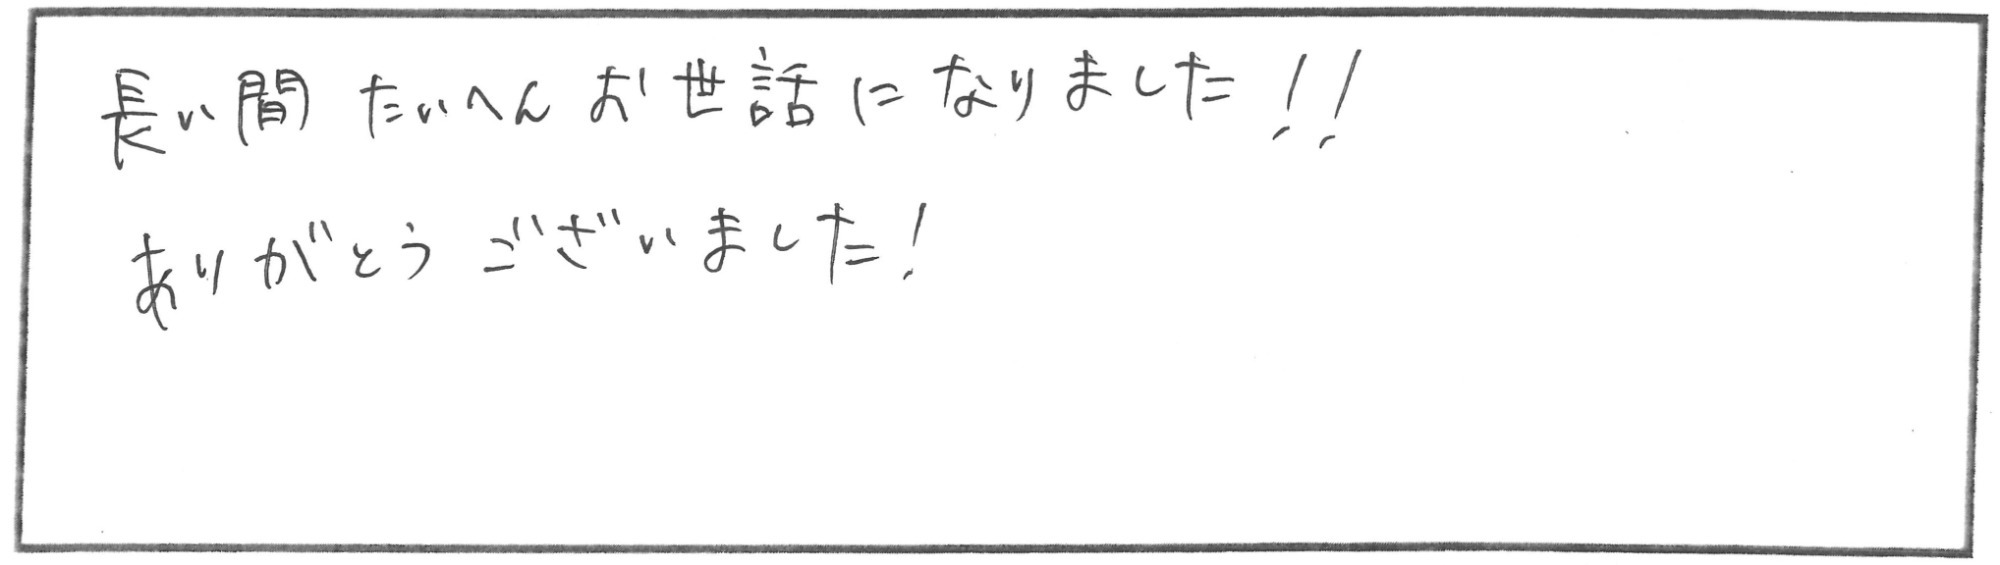 長い間 たいへん お世話に なりました!!
ありがとう ございました!